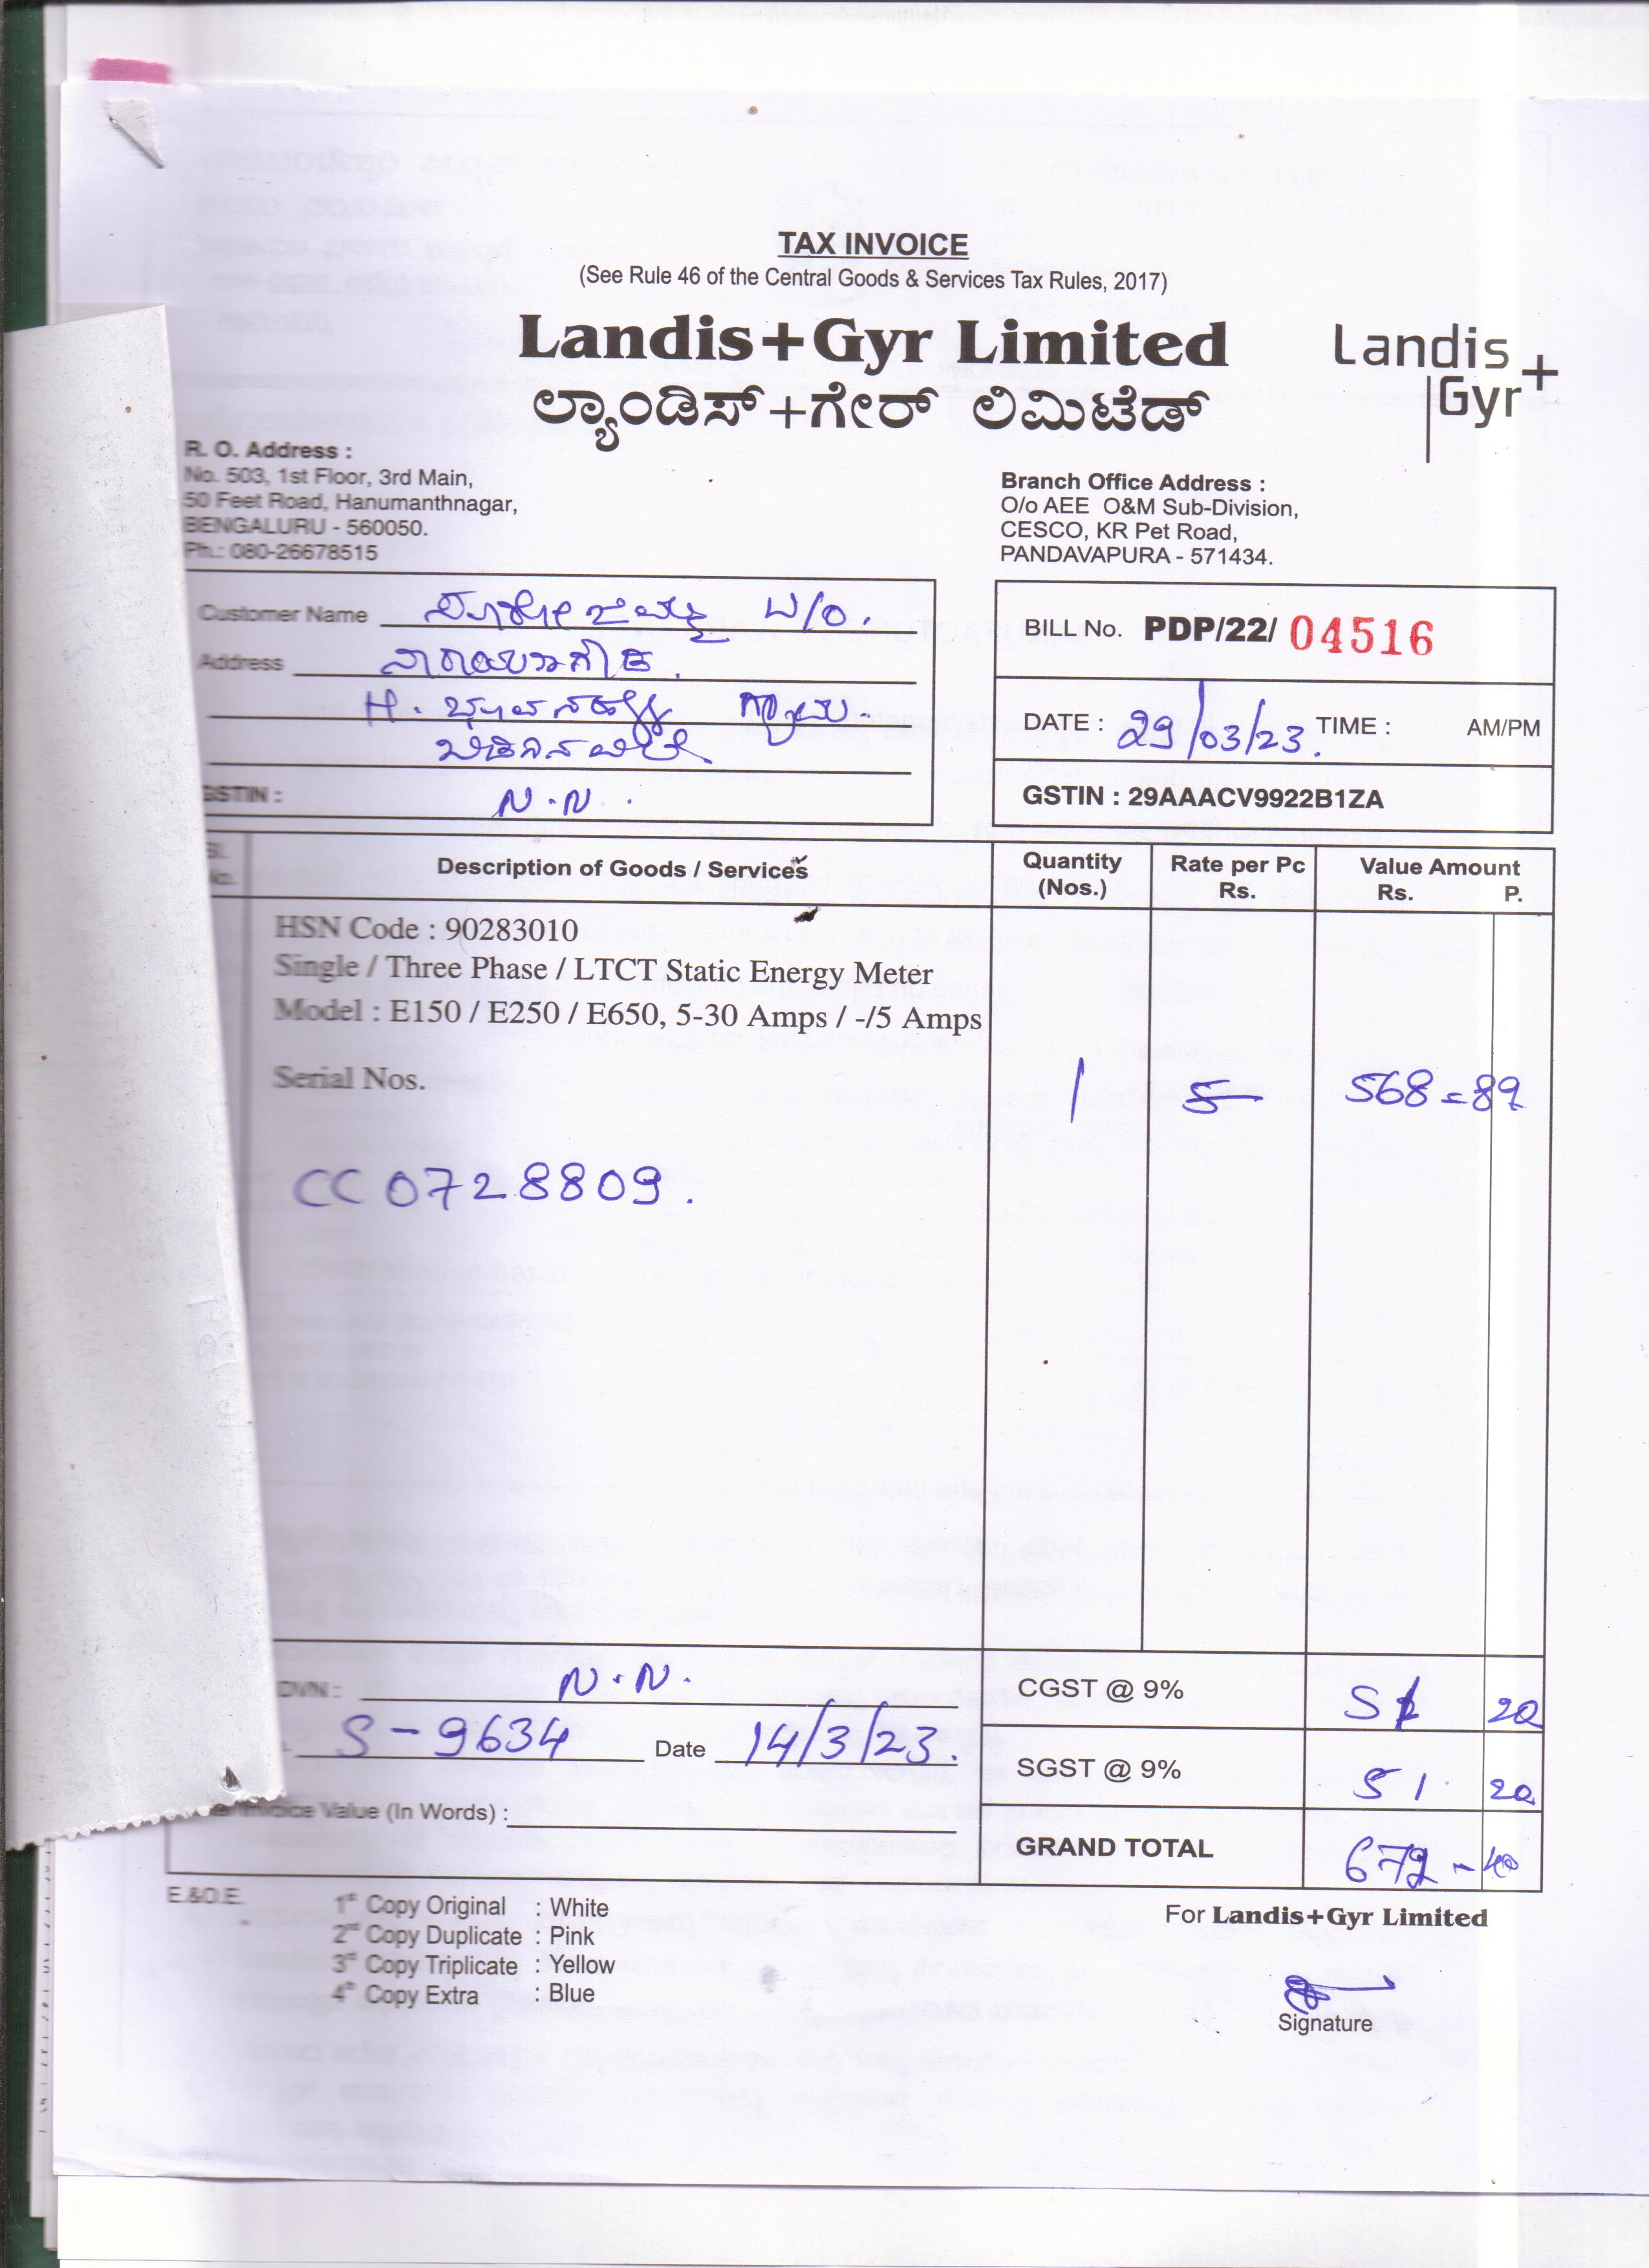 TAX INVOICE
(See Rule 46 of the Central Goods & Services Tax Rules, 2017)
Landis+Gyr Limited
ಲ್ಯಾಂಡಿಸ್+ಗೇರ್ ಲಿಮಿಟೆಡ್
Landis+
Gyr
R. O. Address :
No. 503, 1st Floor, 3rd Main,
50 Feet Road, Hanumanthnagar,
BENGALURU - 560050.
Ph.: 080-26678515
Branch Office Address :
O/o AEE O&M Sub-Division,
CESCO, KR Pet Road,
PANDAVAPURA - 571434.
Customer Name W/O.
Address ನಾರಾಯಣಗೌಡ.
H. ಗ್ರಾಮ.
GSTIN : N.N.
BILL No. PDP/22/ 04516
DATE : 29/03/23. TIME : AM/PM
GSTIN : 29AAACV9922B1ZA
Sl. No. Description of Goods / Services Quantity (Nos.) Rate per Pc Rs. Value Amount Rs. P.
HSN Code : 90283010
Single / Three Phase / LTCT Static Energy Meter
Model : E150 / E250 / E650, 5-30 Amps / -/5 Amps
Serial Nos. 1 568=89
CC0728809.
DVN : N.N.
S-9634 Date 14/3/23.
CGST @ 9% 51 20
SGST @ 9% 51 20
Invoice Value (In Words) :
GRAND TOTAL 672-40
E.&O.E.
1st Copy Original : White
2nd Copy Duplicate : Pink
3rd Copy Triplicate : Yellow
4th Copy Extra : Blue
For Landis+Gyr Limited
Signature